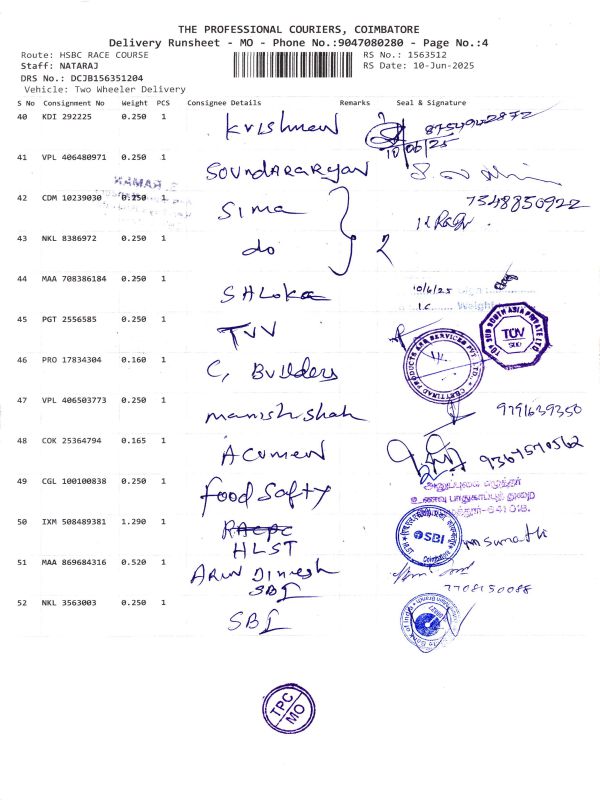 THE PROFESSIONAL COURIERS, COIMBATORE
Delivery Runsheet - MO - Phone No.:9047080280 - Page No.:4
Route: HSBC RACE COURSE
RS No.: 1563512
Staff: NATARAJ
RS Date: 10-Jun-2025
DRS No.: DCJB156351204
Vehicle: Two Wheeler Delivery
S No Consignment No Weight PCS Consignee Details Remarks Seal & Signature
40 KDI 292225 0.250 1 Krishnan 8754902872
10/06/25
41 VPL 406480971 0.250 1 Soundararajan
42 CDM 10239030 0.250 1 Sima 7548850922
43 NKL 8386972 0.250 1 do 2
44 MAA 708386184 0.250 1 SHLoka 10/6/25
45 PGT 2556585 0.250 1 TVV
TUV SUD SOUTH ASIA PRIVATE LTD
TUV
SUD
46 PRO 17834304 0.160 1 C, Builders
47 VPL 406503773 0.250 1 manish shah 9791639350
48 COK 25364794 0.165 1 Acumen 9367570562
49 CGL 100100838 0.250 1 Food Safty
உணவு பாதுகாப்புத் துறை
50 IXM 508489381 1.290 1 RACPC
HLST
SBI
Coimbatore
51 MAA 869684316 0.520 1 Arun Dinesh
SBI
7708150088
52 NKL 3563003 0.250 1 SBI
TPC
MO